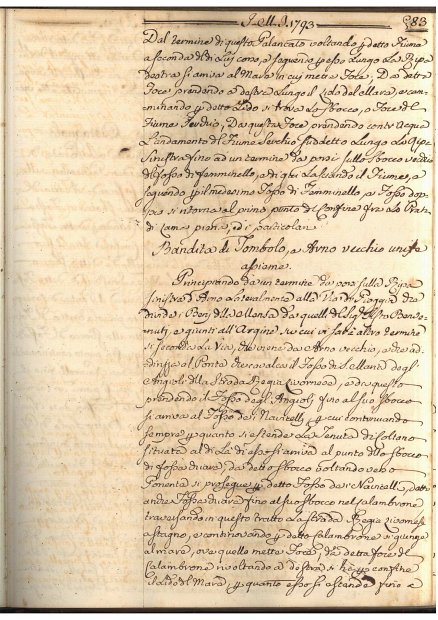 J. M. J. 1793 283
Dal termine di questo Palancato voltando p detto Fiume
a seconda del di Lui corso, e seguendo p esso Lungo La Ripa
destra si arriva al Mare in cui mette Foce, Da detta
Foce prendendo a destra Lungo il Lido del Mare, e cam-
minando p detto Lido si trova Lo Sbocco, o Foce del
Fiume Serchio, Da questa Foce prendendo contr'Acqua
L'andamento del Fiume Serchio suddetto Lungo La Ripa
Sinistra fino ad un termine da porsi sullo Sbocco vecchio
del Fosso di Femminello, e di qui Lasciando il Fiume, e
seguendo p il medesimo Fosso di Femminello, e Fosso dop-
pio si ritorna al primo punto del Confine fra Lo Prata
di Campiano, e di particolari
Bandita di Tombolo, e Arno vecchio unite
assieme.
Principiando da un termine da porsi sulla Ripa
sinistra d'Arno Lateralmente alla Via di Poggio che
divide i Beni della Mensa da quelli del Sig.
e giunti all'Argine su cui vi sarà altro termine
si seconda La Via, che viene da Arno vecchio, e che con-
duce al Ponte che cavalca il Fosso di S. Maria degl'
Angioli della Strada Regia Livornese, e di questo
prendendo il Fosso degl'Angioli fino al suo sbocco
si arriva al Fosso de Navicelli, p cui continuando
sempre p quanto si estende La Tenuta di Coltano
situata al di La di esso si arriva al punto dello sbocco
di fossa chiara, da detto sbocco voltando verso
Ponente si prosegue p detto Fosso de Navicelli, detto
anche Fossa chiara fino al suo sbocco nel Calambrone
traversando in questo tratto La Strada Regia Livornese
a Stagno, e continovando p detto Calambrone si giunge
al mare, ove quello mette Foce, Da detta foce del
Calambrone rivoltando a destra si ha p confine
il Lido del Mare p quanto esso si estende fino a